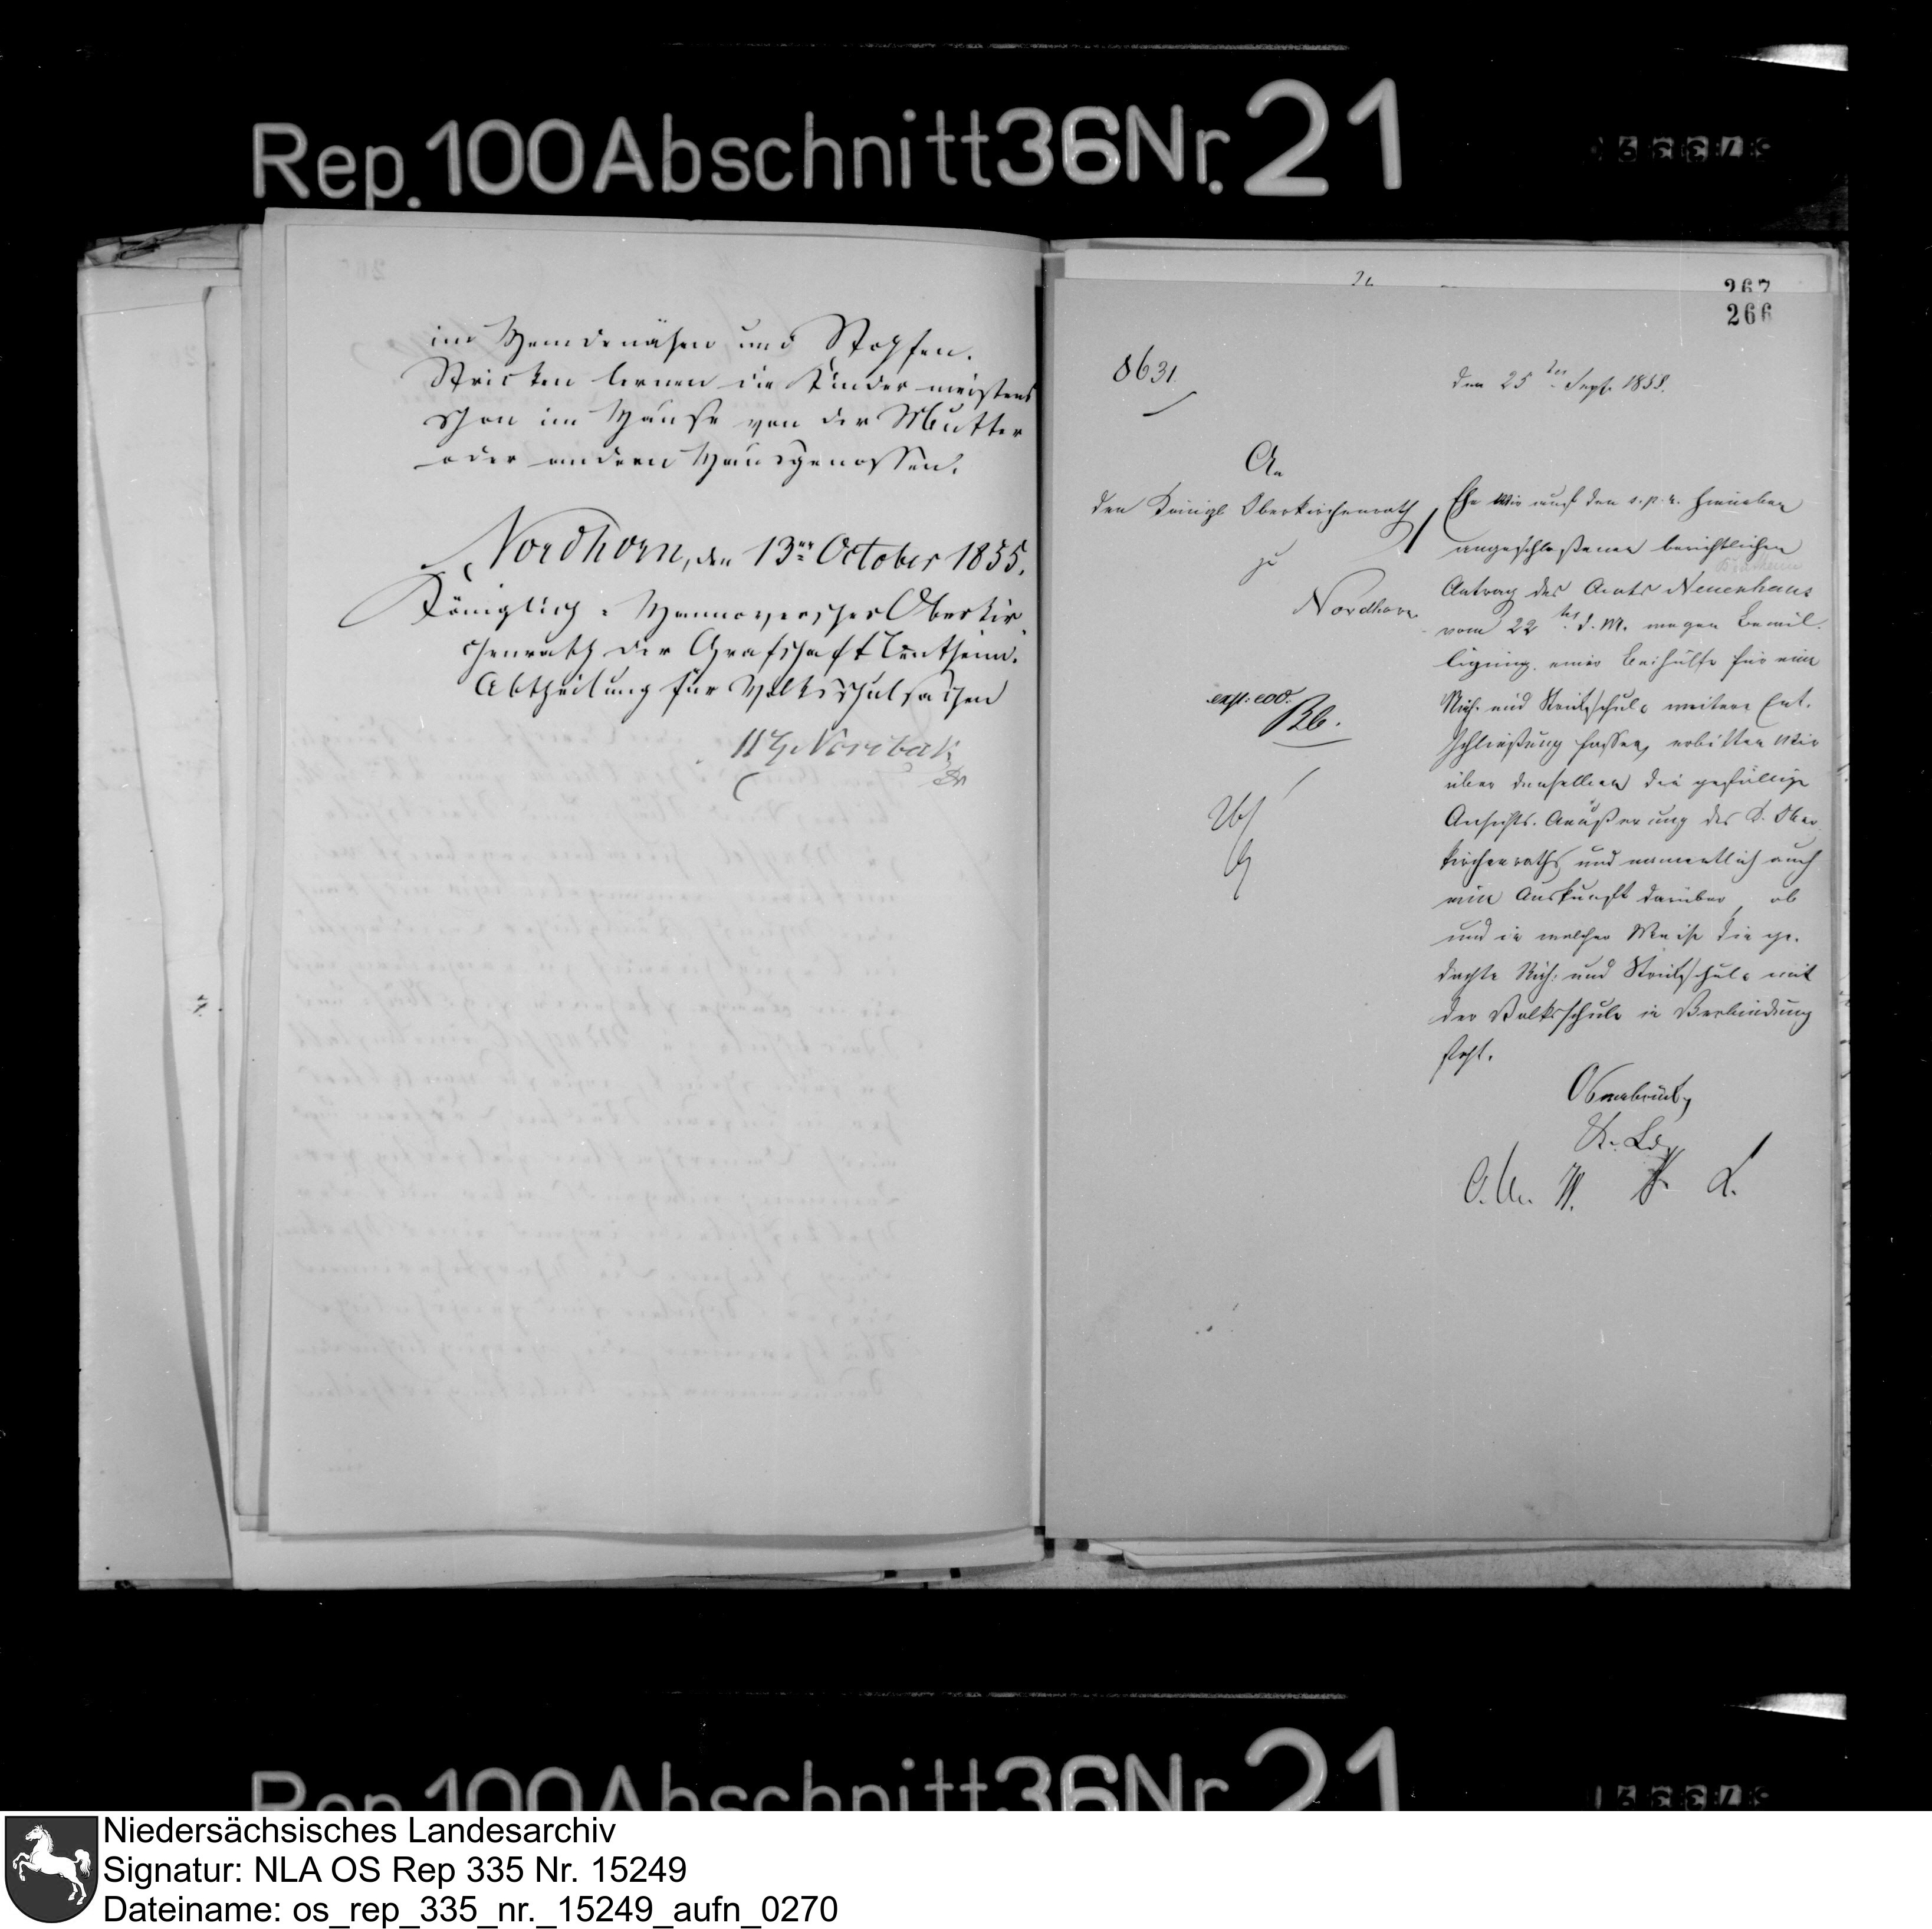 Rep. 100 Abschnitt 36 Nr. 21
im Hemdenähen und Stopfen.
Stricken lernen die Kinder meistens
schon im Hause von der Mutter
oder andern Hausgenossen.
Nordhorn, den 13ten October 1855.
Königlich-Hannoverscher Oberkir-
chenrath der Grafschaft Bentheim.
Abtheilung für Volksschulsachen
267
266
8631
den 25ten Sept. 1855.
An
den Königl Oberkirchenrath
zu
Nordhorn
expt: eod.
Ehe Wir auf den s. p. r. hieneben
angeschlossenen berichtlichen
Antrag des Amts Neuenhaus
vom 22ten d. M. wegen Bewil-
ligung einer Beihülfe für eine
Näh- und Strickschule weitere Ent-
schließung fassen, erbitten Wir
über denselben die gefällige
Ansichts-Äußerung des K. Ober
kirchenraths und namentlich auch
eine Auskunft darüber, ob
und in welcher Weise die ge-
dachte Näh- und Strickschule mit
der Volksschule in Verbindung
steht.
Osnabrück,
K. Ld
Rep. 100 Abschnitt 36 Nr. 21
Niedersächsisches Landesarchiv
Signatur: NLA OS Rep 335 Nr. 15249
Dateiname: os_rep_335_nr._15249_aufn_0270